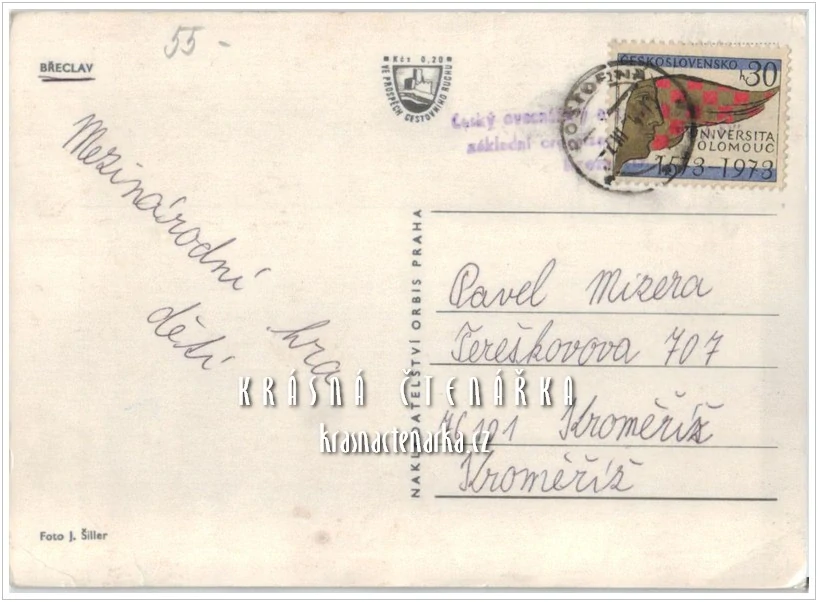 55-
BŘECLAV
Kčs 0,20
VE PROSPĚCH CESTOVNÍHO RUCHU
Český
základní
POSTOŘNÁ
ČESKOSLOVENSKO h30
UNIVERSITA
OLOMOUC
1573-1973
Mezinárodní hra
dětí
NAKLADATELSTVÍ ORBIS PRAHA
Pavel Mizera
Tereškovova 707
76101 Kroměříž
Kroměříž
KRÁSNÁ ČTENÁŘKA
krasnactenarka.cz
Foto J. Šiller